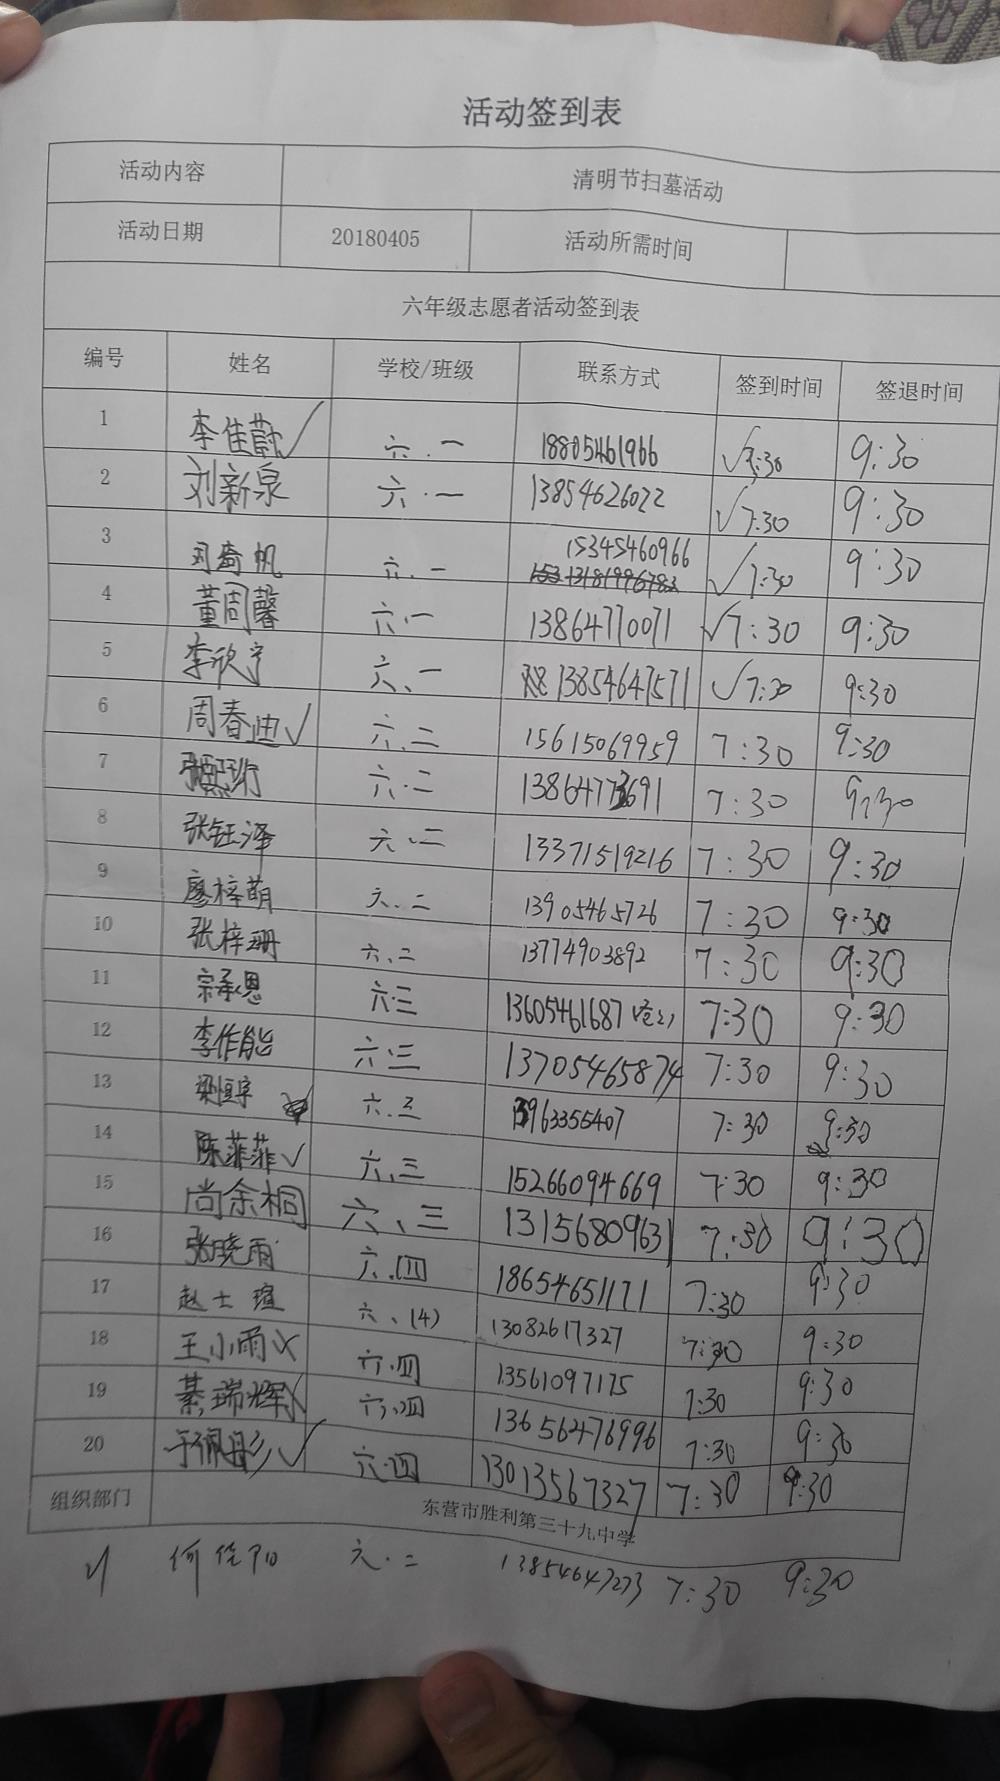 活动签到表
活动内容 清明节扫墓活动
活动日期 20180405 活动所需时间
六年级志愿者活动签到表
编号 姓名 学校/班级 联系方式 签到时间 签退时间
1 李佳蔚✓ 六.一 18805461966 ✓7:30 9:30
2 刘新泉 六.一 13854626022 ✓7:30 9:30
3 六.一 15345460966 ✓7:30 9:30
4 董周馨 六.一 13864770071 ✓7:30 9:30
5 李欣宇 六、一 13854647571 ✓7:30 9:30
6 周春迪✓ 六.二 15615069959 7:30 9:30
7 六.二 13864773691 7:30 9:30
8 张钰泽 六.二 13371519216 7:30 9:30
9 廖梓萌 六.二 13905465726 7:30 9:30
10 张梓珊 六.二 13774903892 7:30 9:30
11 宗承恩 六.三 13605461687 7:30 9:30
12 李作能 六.三 13705465874 7:30 9:30
13 梁恒宇 六.三 13963355407 7:30 9:30
14 陈菲菲✓ 六.三 15266094669 7:30 9:30
15 尚余桐 六、三 13156809631 7:30 9:30
16 张晓雨 六.四 18654651171 7:30 9:30
17 赵士瑄 六、(4) 13082617327 7:30 9:30
18 王小雨 六.四 13561097175 7:30 9:30
19 綦瑞辉 六.四 13656476996 7:30 9:30
20 于佩彤✓ 六.四 13013567327 7:30 9:30
组织部门 东营市胜利第三十九中学
21 何佳阳 六.二 13854647273 7:30 9:30